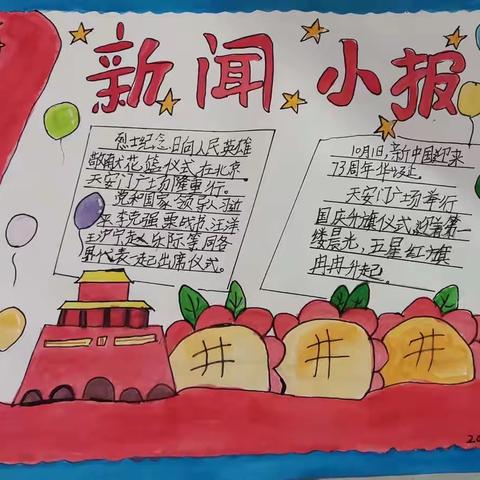 新闻小报
烈士纪念日向人民英雄
敬献花篮仪式在北京
天安门广场隆重行。
党和国家领导人习近
平李克强栗战书、汪洋
王沪宁赵乐际等同各
界代表一起出席仪式。
10月1日,新中国迎来
73周年华诞。
天安门广场举行
国庆升旗仪式,迎着第一
缕晨光,五星红旗
冉冉升起。